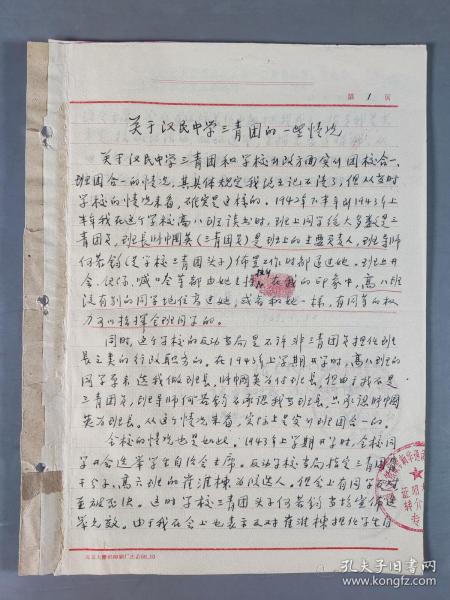 第 1 页
关于汉民中学三青团的一些情况
关于汉民中学三青团和学校行政方面实行团校合一、
班团合一的情况，其具体规定我现在记不清了，但从当时
学校的情况来看，确实是这样的。1942年下半年到1943年上
半年我在这个学校高八班读书时，班上同学绝大多数是三
青团员，班长帅帼英（三青团员）是班上的主要负责人，班主任
何若钧（是学校三青团头子）布置工作时都通过她。班上开
会、记你、喊口令等都由她主持。在我的印象中，高八班
没有别的同学地位高过她，或者和她一样，有同等的权
力可以指挥全班同学的。
同时，这个学校的反动当局是不许非三青团员担任班
长之类的行政职务的。在1943年上学期开学时，高八班的
同学原来选我做班长，帅帼英为付班长，但由于我不是
三青团员，班主任何若钧不承认我当班长，只承认帅帼
英为班长。从这个情况来看，实际上是实行班团合一的。
全校的情况也是如此。1943年上学期开学时，全校同
学开会选举学生自治会主席。反动学校当局指定三青团骨
干分子，高六班的崔淮栋为候选人。但会上有同学反对
至被否决。这时学校三青团头子何若钧当场宣布选
举无效。由于我在会上也表示反对崔淮栋担任学生自
孔夫子旧书网
book.kongfz.com